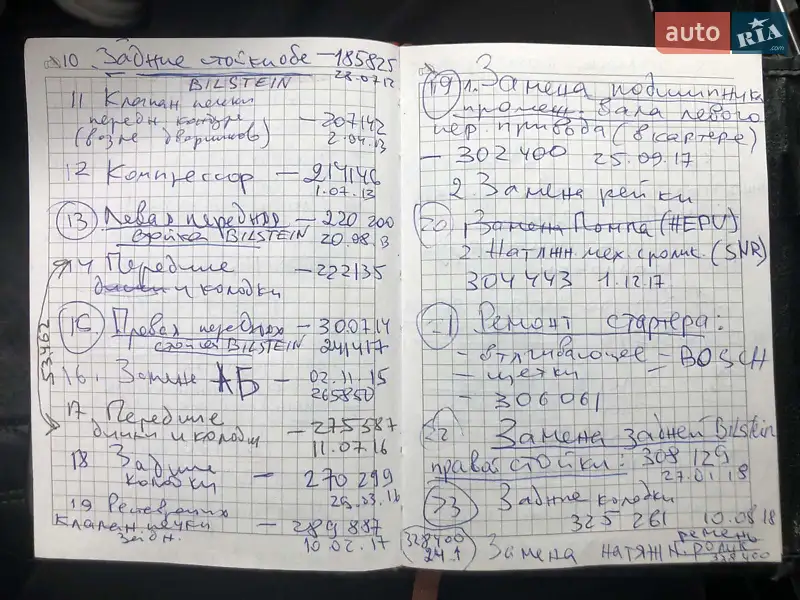 auto RIA.com
10 Задние стойки обе – 185825
BILSTEIN 28.07.12
11 Клапан печки
передн контура – 207142
(возле дворников) 2.04.13
12 Компрессор – 214146
1.07.13
13 Левая передняя – 220 200
стойка BILSTEIN 20.08.13
14 Передние – 222135
диски и колодки
15 Правая передняя – 30.07.14
стойка BILSTEIN 241417
53462
16. Замена АБ – 02.11.15
265850
17 Передние – 275587
диски и колодки 11.07.16
18 Задние
колодки – 270 299
29.03.16
19
клапан печки – 289 887
10.02.17
19 1. Замена подшипника
промеж. вала левого
пер. привода (в картере)
– 302 400 25.09.17
2. Замена рейки
20 1. Замена Помпа (HEPU)
2. Натяжн. мех. + ролик. (SNR)
304 443 1.12.17
21 Ремонт стартера:
– втягивающее = BOSCH
– щетки
– 306061
22 Замена задней Bilstein
правой стойки: 308 129
27.01.18
23 Задние колодки
325 261 10.08.18
ремень
328400 Замена натяжн. ролик
24.1 328 400